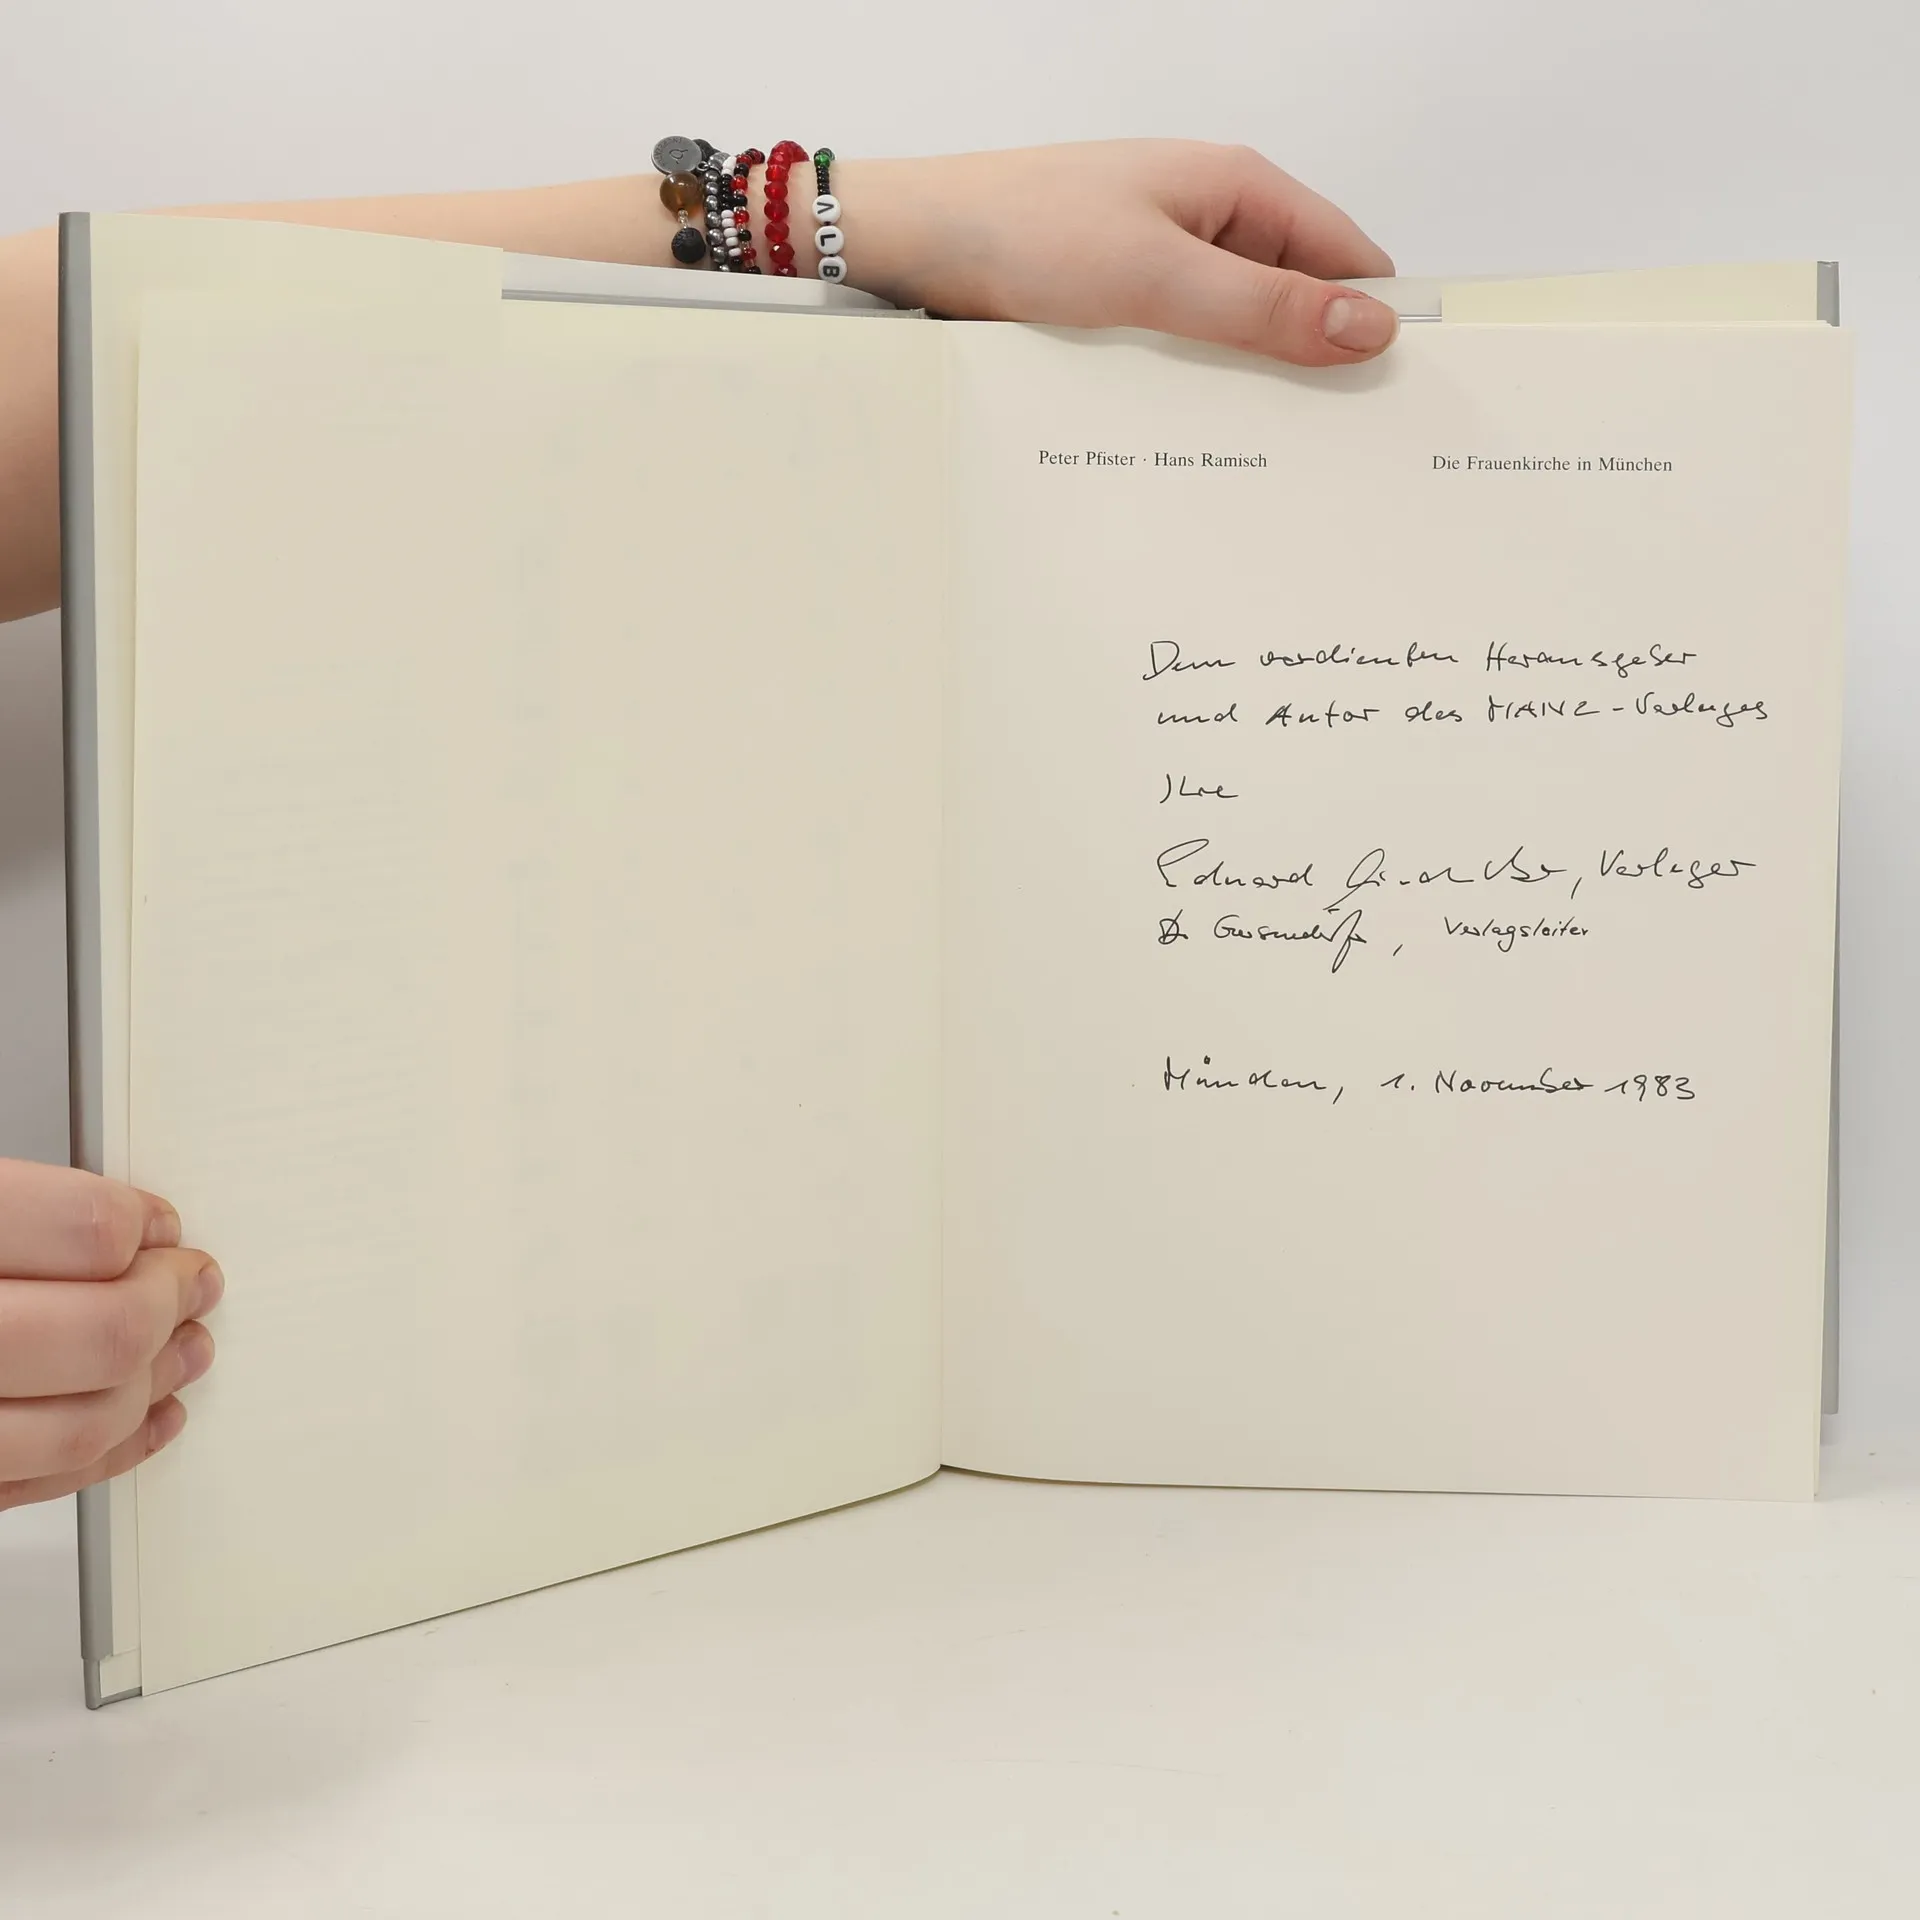 ALB
Peter Pfister · Hans Ramisch
Die Frauenkirche in München
Dem verdienten Herausgeber
und Autor des MANZ-Verlages
Ihre
Eduard , Verleger
Dr. , Verlagsleiter
München, 1. November 1983